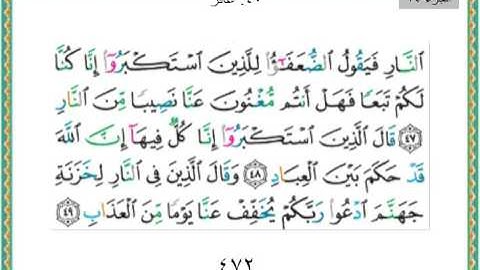 ٤٠. غافر
النَّارِ فَيَقُولُ الضُّعَفَٰٓؤُا۟ لِلَّذِينَ اسْتَكْبَرُوٓا۟ إِنَّا كُنَّا
لَكُمْ تَبَعًا فَهَلْ أَنتُم مُّغْنُونَ عَنَّا نَصِيبًا مِّنَ النَّارِ
﴿٤٧﴾ قَالَ الَّذِينَ اسْتَكْبَرُوٓا۟ إِنَّا كُلٌّ فِيهَآ إِنَّ اللَّهَ
قَدْ حَكَمَ بَيْنَ الْعِبَادِ ﴿٤٨﴾ وَقَالَ الَّذِينَ فِى النَّارِ لِخَزَنَةِ
جَهَنَّمَ ادْعُوا۟ رَبَّكُمْ يُخَفِّفْ عَنَّا يَوْمًا مِّنَ الْعَذَابِ ﴿٤٩﴾
٤٧٢